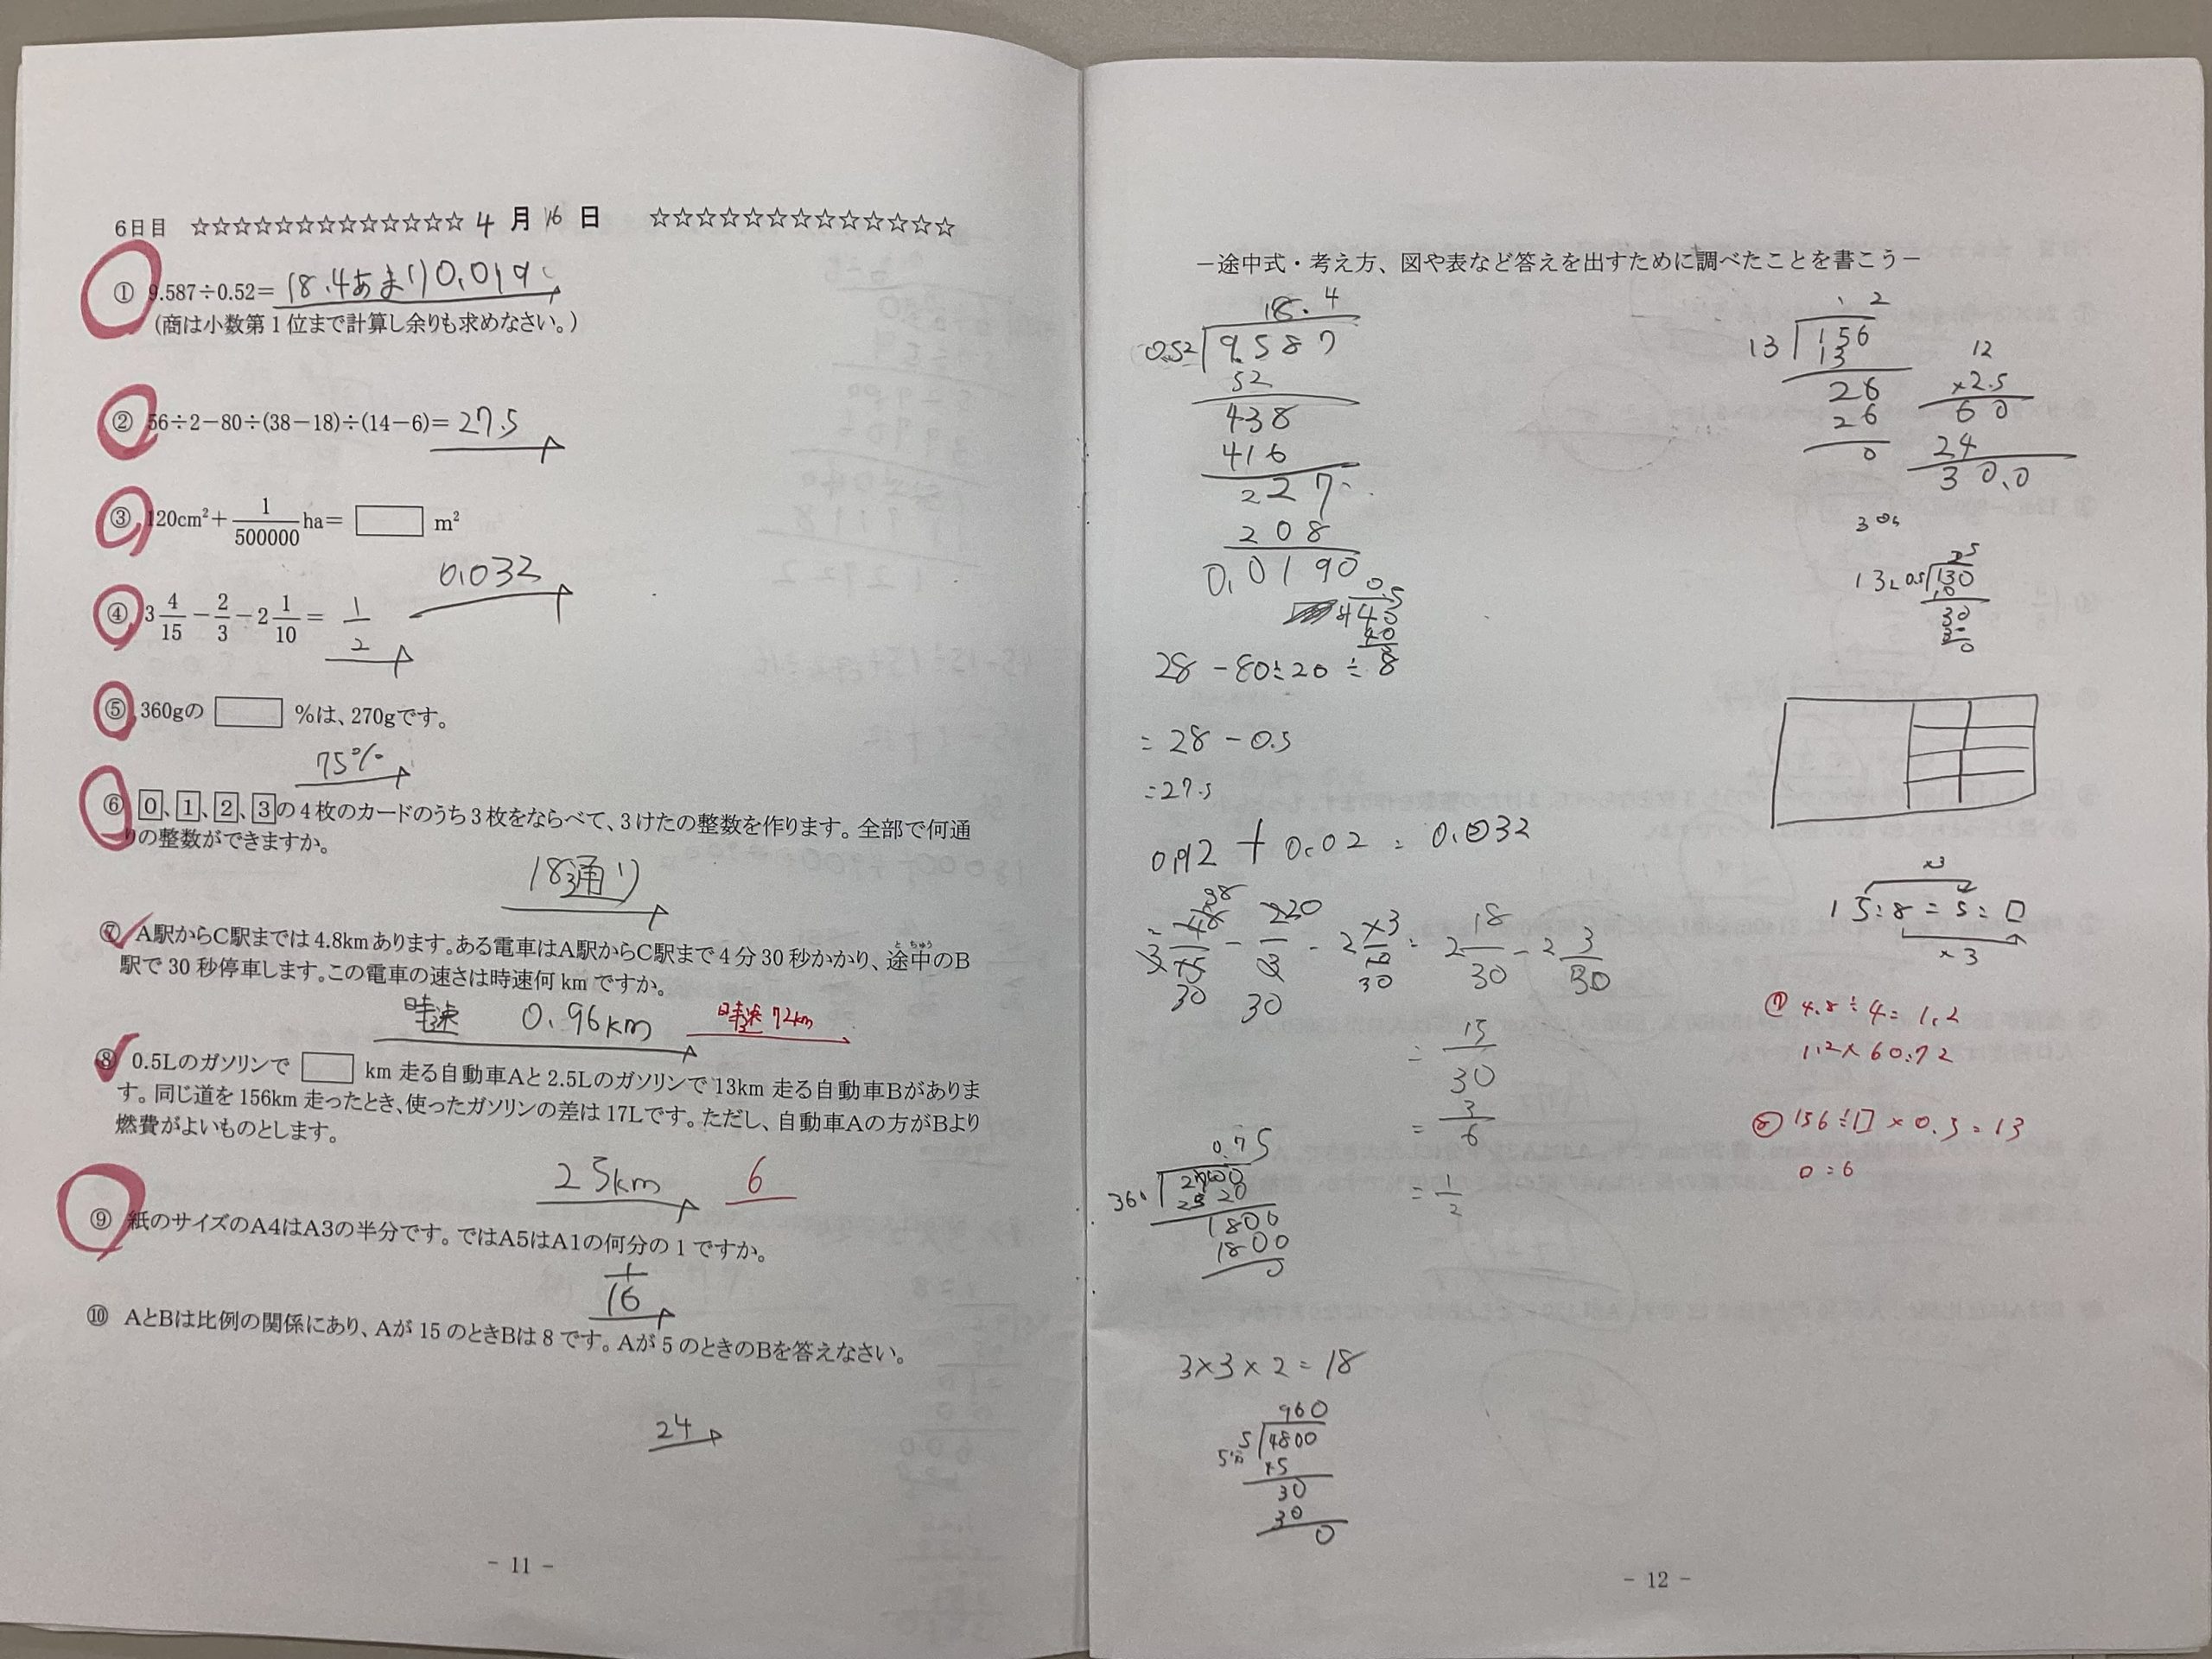 6日目 ☆☆☆☆☆☆☆☆☆☆☆☆☆ 4 月 16 日 ☆☆☆☆☆☆☆☆☆☆☆☆☆
① 9.587÷0.52= 18.4あまり0.019
(商は小数第1位まで計算し余りも求めなさい。)
② 56÷2−80÷(38−18)÷(14−6)= 27.5
③ 120cm²+1/500000 ha= □ m²
0.032
④ 3 4/15 − 2/3 − 2 1/10 = 1/2
⑤ 360gの □ %は、270gです。
75%
⑥ 0、1、2、3の4枚のカードのうち3枚をならべて、3けたの整数を作ります。全部で何通
りの整数ができますか。
18通り
⑦ A駅からC駅までは4.8kmあります。ある電車はA駅からC駅まで4分30秒かかり、途中のB
とちゅう
駅で30秒停車します。この電車の速さは時速何kmですか。
時速 0.96km 時速 72km
⑧ 0.5Lのガソリンで □ km 走る自動車Aと2.5Lのガソリンで13km 走る自動車Bがありま
す。同じ道を156km 走ったとき、使ったガソリンの差は17Lです。ただし、自動車Aの方がBより
燃費がよいものとします。
25km 6
⑨ 紙のサイズのA4はA3の半分です。ではA5はA1の何分の1ですか。
1/16
⑩ AとBは比例の関係にあり、Aが15のときBは8です。Aが5のときのBを答えなさい。
24
- 11 -
−途中式・考え方、図や表など答えを出すために調べたことを書こう−
18.4
0.52 9.587
52
438
416
227
208
0.0190
0.5
40
28−80÷20÷8
=28−0.5
=27.5
+0.02=0.032
=2 18/30−2 3/30
=15/30
=3/6
=1/2
0.75
360
1800
1800
0
3×3×2=18
960
5 4800
45
30
30
0
12
13 156
13
26
26
0
12
×2.5
60
24
30.0
130
30
0
×3
15:8=5:□
×3
⑦ 4.8÷4=1.2
1.2×60=72
⑧ 156÷□×0.5=13
□=6
- 12 -